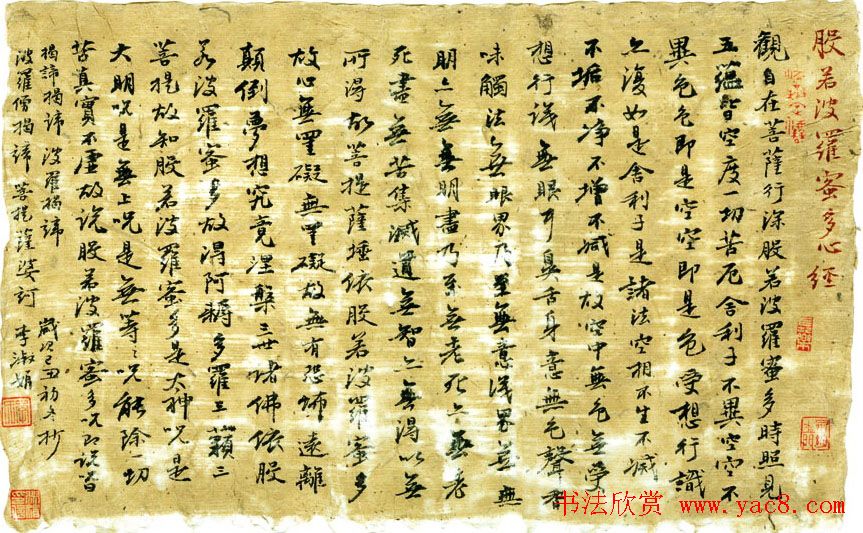 般若波羅蜜多心經
觀自在菩薩行深般若波羅蜜多時照見
五蘊皆空度一切苦厄舍利子不異空空不
異色色即是空空即是色受想行識
亦復如是舍利子是諸法空相不生不滅
不垢不净不增不減是故空中無色無受
想行識無眼耳鼻舌身意無色聲香
味觸法無眼界乃至無意識界無無
明亦無無明盡乃至無老死亦無老
死盡無苦集滅道無智亦無得以無
所得故菩提薩埵依般若波羅蜜多
故心無罣礙無罣礙故無有恐怖遠離
顛倒夢想究竟涅槃三世諸佛依般
若波羅蜜多故得阿耨多羅三藐三
菩提故知般若波羅蜜多是大神呪是
大明呪是無上呪是無等々呪能除一切
苦真實不虛故說般若波羅蜜多呪即說
揭諦揭諦 波羅揭諦
波羅僧揭諦 菩提薩婆訶
歲次己丑初冬抄
李淑娟
书法欣赏 www.yac8.com